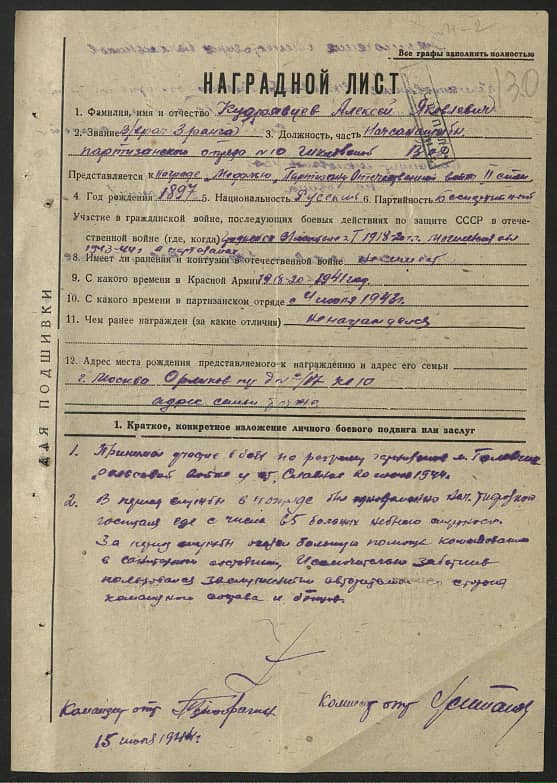 Все графы заполнять полностью
130
НАГРАДНОЙ ЛИСТ
1. Фамилия, имя и отчество Кудрявцев Алексей Яковлевич
2. Звание 3. Должность, часть Начсанслужбы
партизанского отряда № 10
Представляется к награде Медалью „Партизану Отечественной войны" II степ
4. Год рождения 1897 5. Национальность Русский 6. Партийность Беспартийный
Участие в гражданской войне, последующих боевых действиях по защите СССР в отече-
ственной войне (где, когда) 1918-20 Могилевской
1943-44 в партизанах
8. Имеет ли ранения и контузии в отечественной войне не имеет
9. С какого времени в Красной Армии 1918-20 - 1941 год.
10. С какого времени в партизанском отряде с 4 июля 1943 г.
11. Чем ранее награжден (за какие отличия) Не награждался
12. Адрес места рождения представляемого к награждению и адрес его семьи
г. Москва Орликов
адрес семьи
ДЛЯ ПОДШИВКИ
1. Краткое, конкретное изложение личного боевого подвига или заслуг
1. Принимал участие в боях по разгрому гарнизонов м. Головчин
рельсовой войне и ст. Славное 1944 г.
2. В период службы в отряде был одновременно нач. тифозного
госпиталя где с числа 65 больных небыло смертности.
За период службы оказал большую помощь командованию
в санитарном состоянии, Исключительно заботлив
пользовался заслуженным авторитетом со стороны
командного состава и бойцов.
Командир отр
Комиссар отр
15 июля 1944 г.